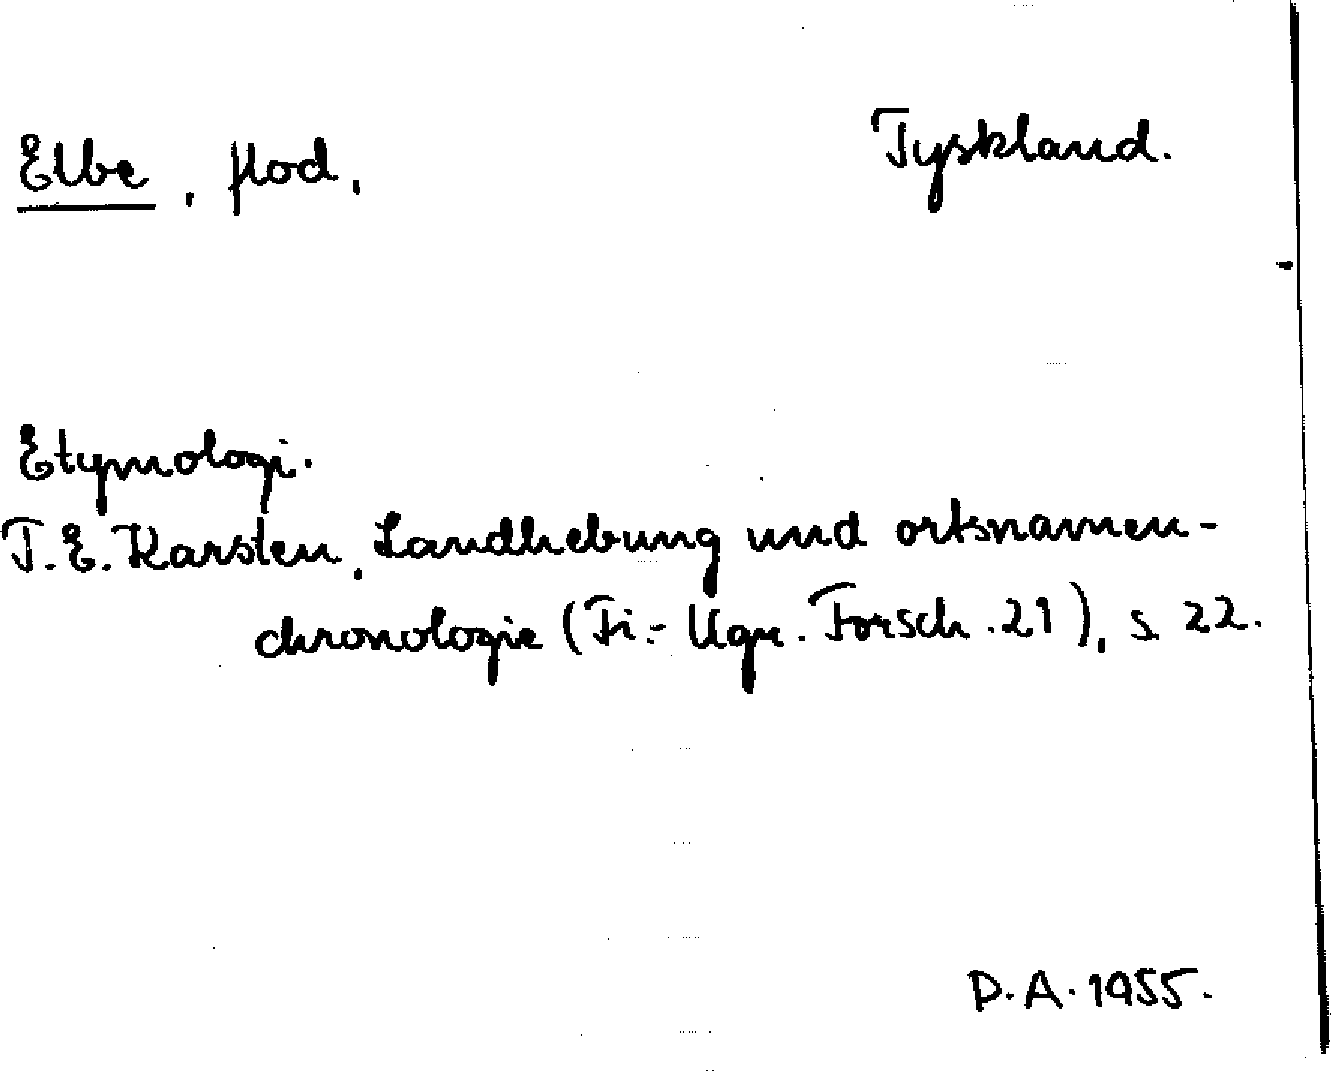 Elbe, flod, Tyskland.
Etymologi.
T. E. Karsten, Landhebung und ortsnamen-
chronologie (Fi.- Ugr. Forsch. 21), s. 22.
D. A. 1955.